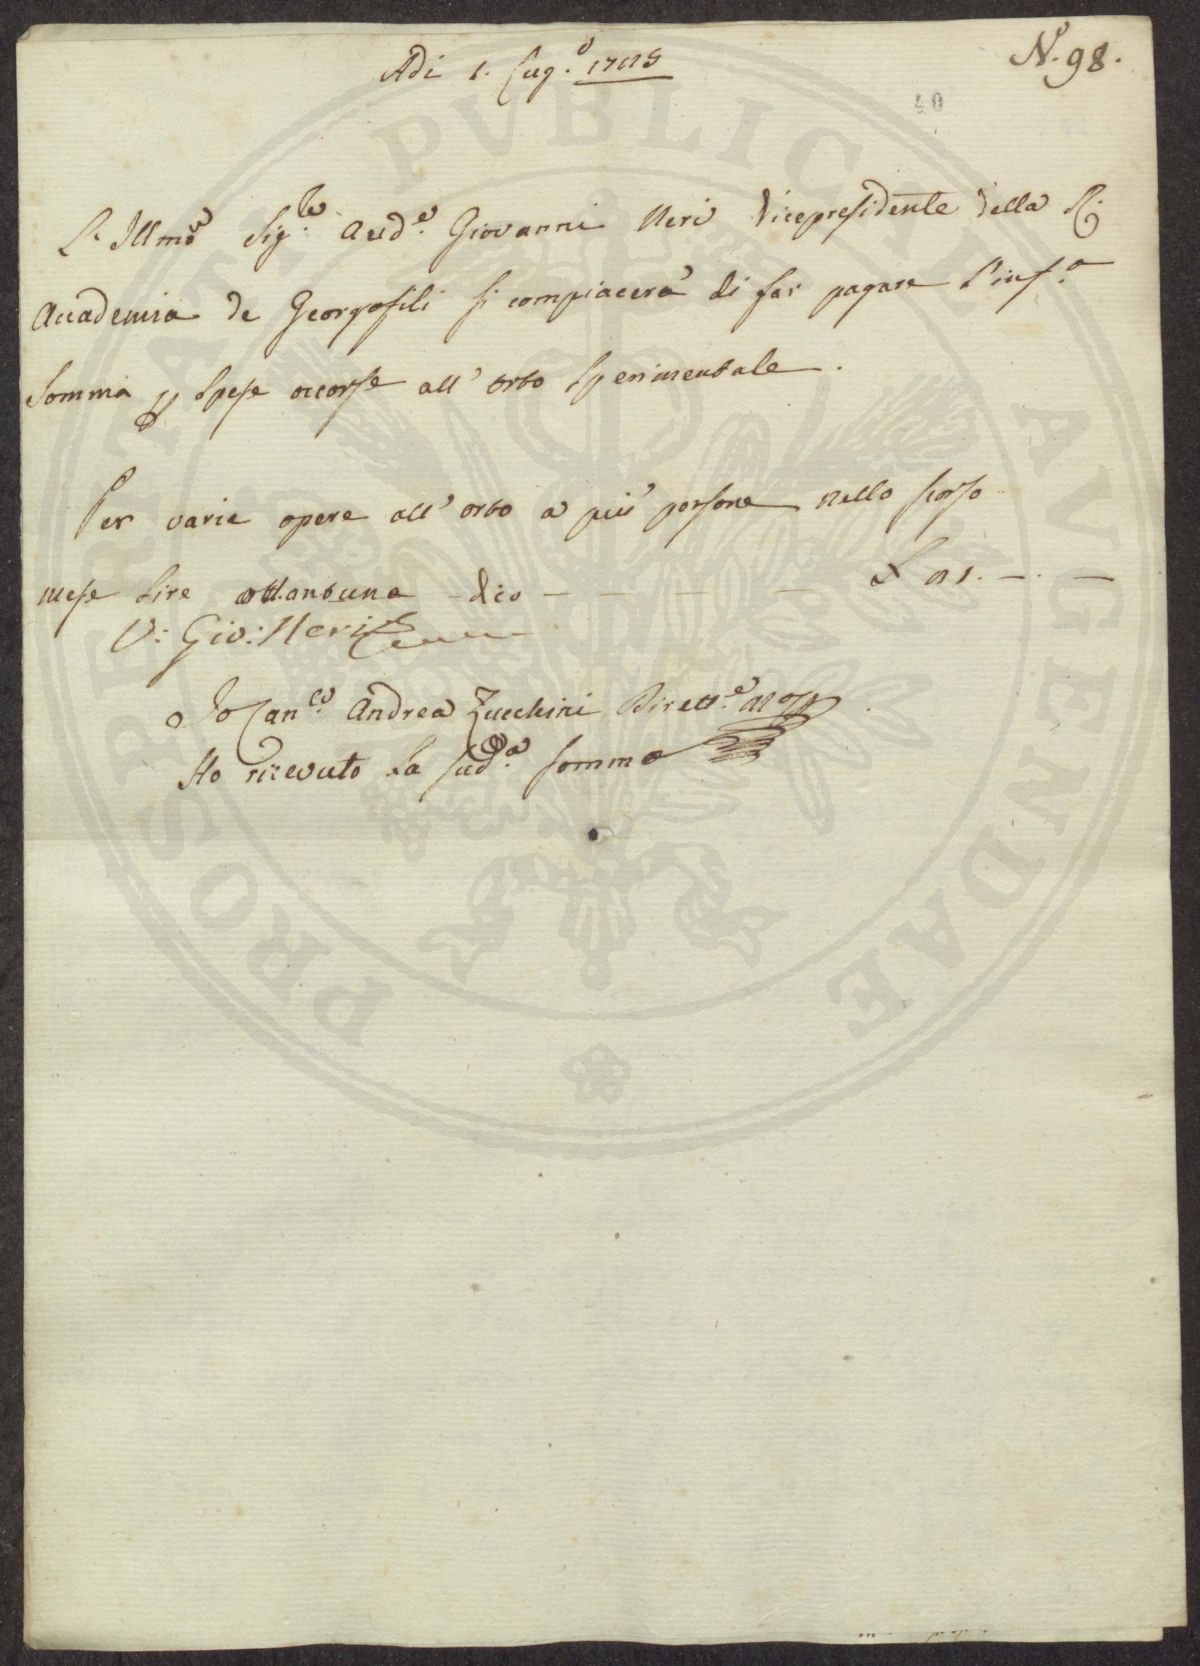 Adi 1. Lug.o 1785
No. 98.
40
L'Illmo Sig.re Aud.e Giovanni Neri Vicepresidente della R.
Accademia de Georgofili si compiacerà di far pagare l'inf.a
Somma p Spese occorse all'orto Sperimentale.
Per varie opere all'orto a più persone nello scorso
mese Lire ottantuna dico — — — — £ 81. — . —
V: Gio: Neri
Io Can.co Andrea Zucchini Dirett.e
Ho ricevuto la sud.a somma
PROSPERITATI PVBLICAE AVGENDAE